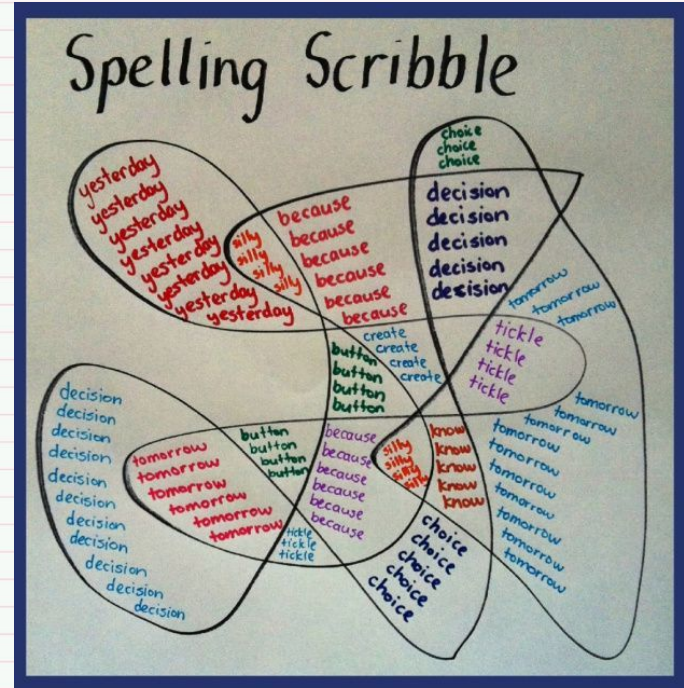 Spelling Scribble
yesterday
yesterday
yesterday
yesterday
yesterday
yesterday
yesterday
yesterday
silly
silly
silly
silly
because
because
because
because
because
because
choice
choice
choice
decision
decision
decision
decision
decision
tomorrow
tomorrow
tomorrow
create
create
create
create
tickle
tickle
tickle
tickle
button
button
button
button
decision
decision
decision
decision
decision
decision
decision
decision
decision
decision
decision
tomorrow
tomorrow
tomorrow
tomorrow
tomorrow
button
button
button
button
because
because
because
because
because
because
tickle
tickle
tickle
silly
silly
silly
silly
know
know
know
know
know
choice
choice
choice
choice
choice
tomorrow
tomorrow
tomorrow
tomorrow
tomorrow
tomorrow
tomorrow
tomorrow
tomorrow
tomorrow